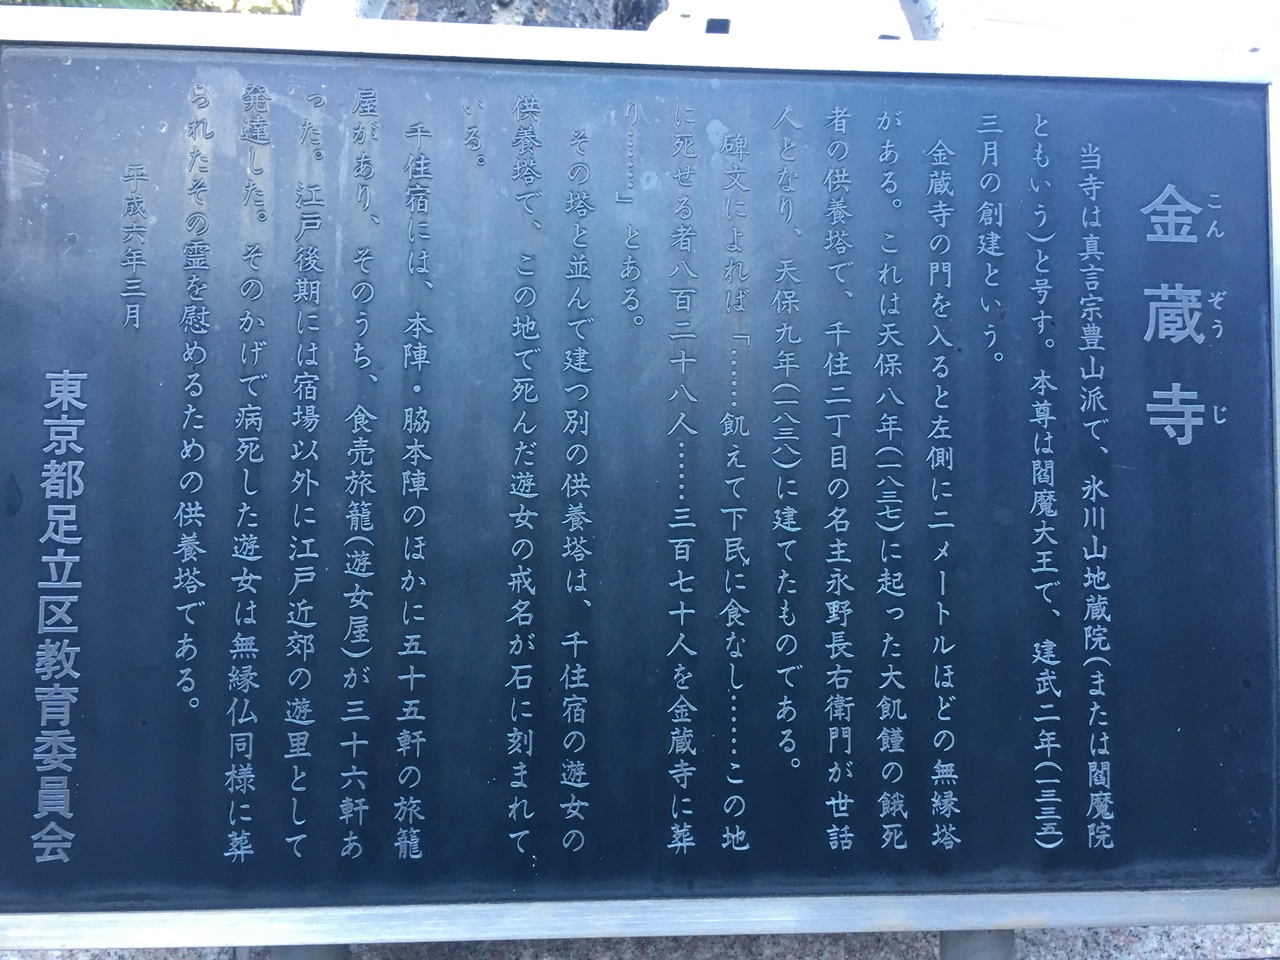 金蔵寺
こんぞうじ
当寺は真言宗豊山派で、氷川山地蔵院(または閻魔院
ともいう)と号す。本尊は閻魔大王で、建武二年(一三三五)
三月の創建という。
金蔵寺の門を入ると左側に二メートルほどの無縁塔
がある。これは天保八年(一八三七)に起った大飢饉の餓死
者の供養塔で、千住二丁目の名主永野長右衛門が世話
人となり、天保九年(一八三八)に建てたものである。
碑文によれば「……飢えて下民に食なし……この地
に死せる者八百二十八人……三百七十人を金蔵寺に葬
り……」とある。
その塔と並んで建つ別の供養塔は、千住宿の遊女の
供養塔で、この地で死んだ遊女の戒名が石に刻まれて
いる。
千住宿には、本陣・脇本陣のほかに五十五軒の旅籠
屋があり、そのうち、食売旅籠(遊女屋)が三十六軒あ
った。江戸後期には宿場以外に江戸近郊の遊里として
発達した。そのかげで病死した遊女は無縁仏同様に葬
られたその霊を慰めるための供養塔である。
平成六年三月
東京都足立区教育委員会